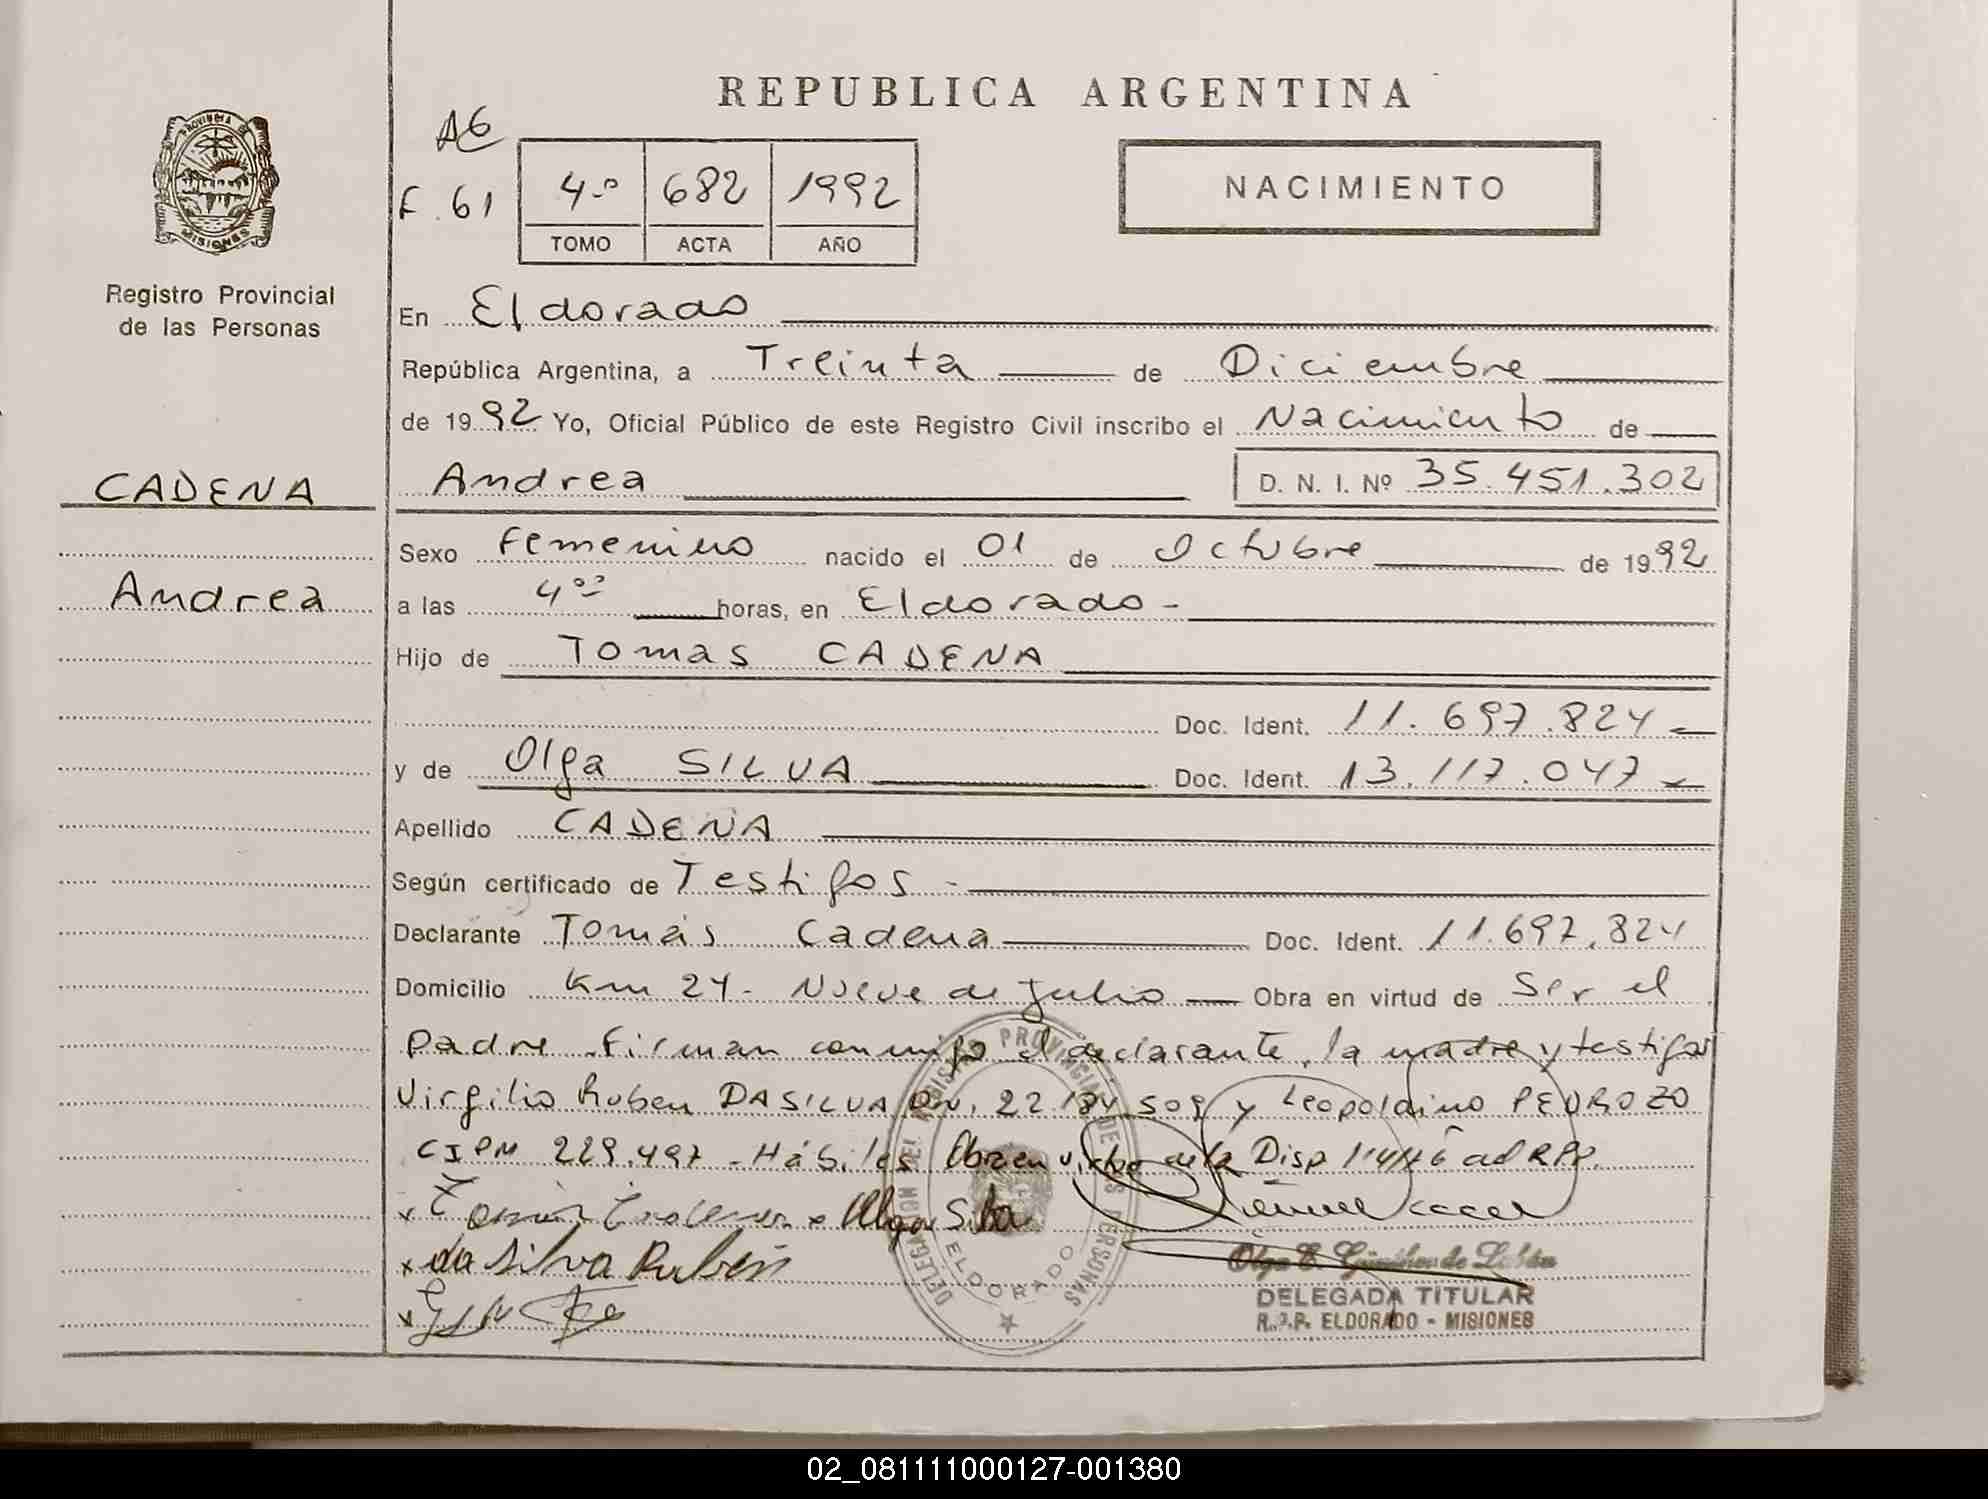 REPUBLICA ARGENTINA
PROVINCIA DE
MISIONES
Registro Provincial
de las Personas
A6
F. 61
4º 682 1992
TOMO ACTA AÑO
NACIMIENTO
En Eldorado
República Argentina, a Treinta de Diciembre
de 1992 Yo, Oficial Público de este Registro Civil inscribo el Nacimiento de
CADENA
Andrea D. N. I. Nº 35.451.302
Sexo Femenino nacido el 01 de Octubre de 1992
Andrea
a las 4ºº horas, en Eldorado-
Hijo de Tomas CADENA
Doc. Ident. 11.697.824
y de Olga SILVA Doc. Ident. 13.117.047
Apellido CADENA
Según certificado de Testigos -
Declarante Tomás Cadena Doc. Ident. 11.697.824
Domicilio Km 24- Nueve de Julio Obra en virtud de Ser el
Padre. Firman conmigo el declarante, la madre y testigos
Virgilio Ruben DASILVA 22.184.509 y Leopoldino PEDROZO
CIPM 229.497 - Hábiles Obra en virtud de la Disp
x Tomás Cadena x Olga Silva
x da Silva Rubén
DELEGACION DEL REGISTRO PROVINCIAL DE LAS PERSONAS
ELDORADO
Olga E. de
DELEGADA TITULAR
R.P.P. ELDORADO - MISIONES
02_081111000127-001380